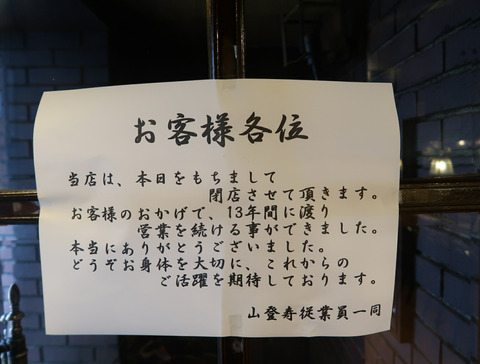 お客様各位
当店は、本日をもちまして
閉店させて頂きます。
お客様のおかげで、13年間に渡り
営業を続ける事ができました。
本当にありがとうございました。
どうぞお身体を大切に、これからの
ご活躍を期待しております。
山登寿従業員一同